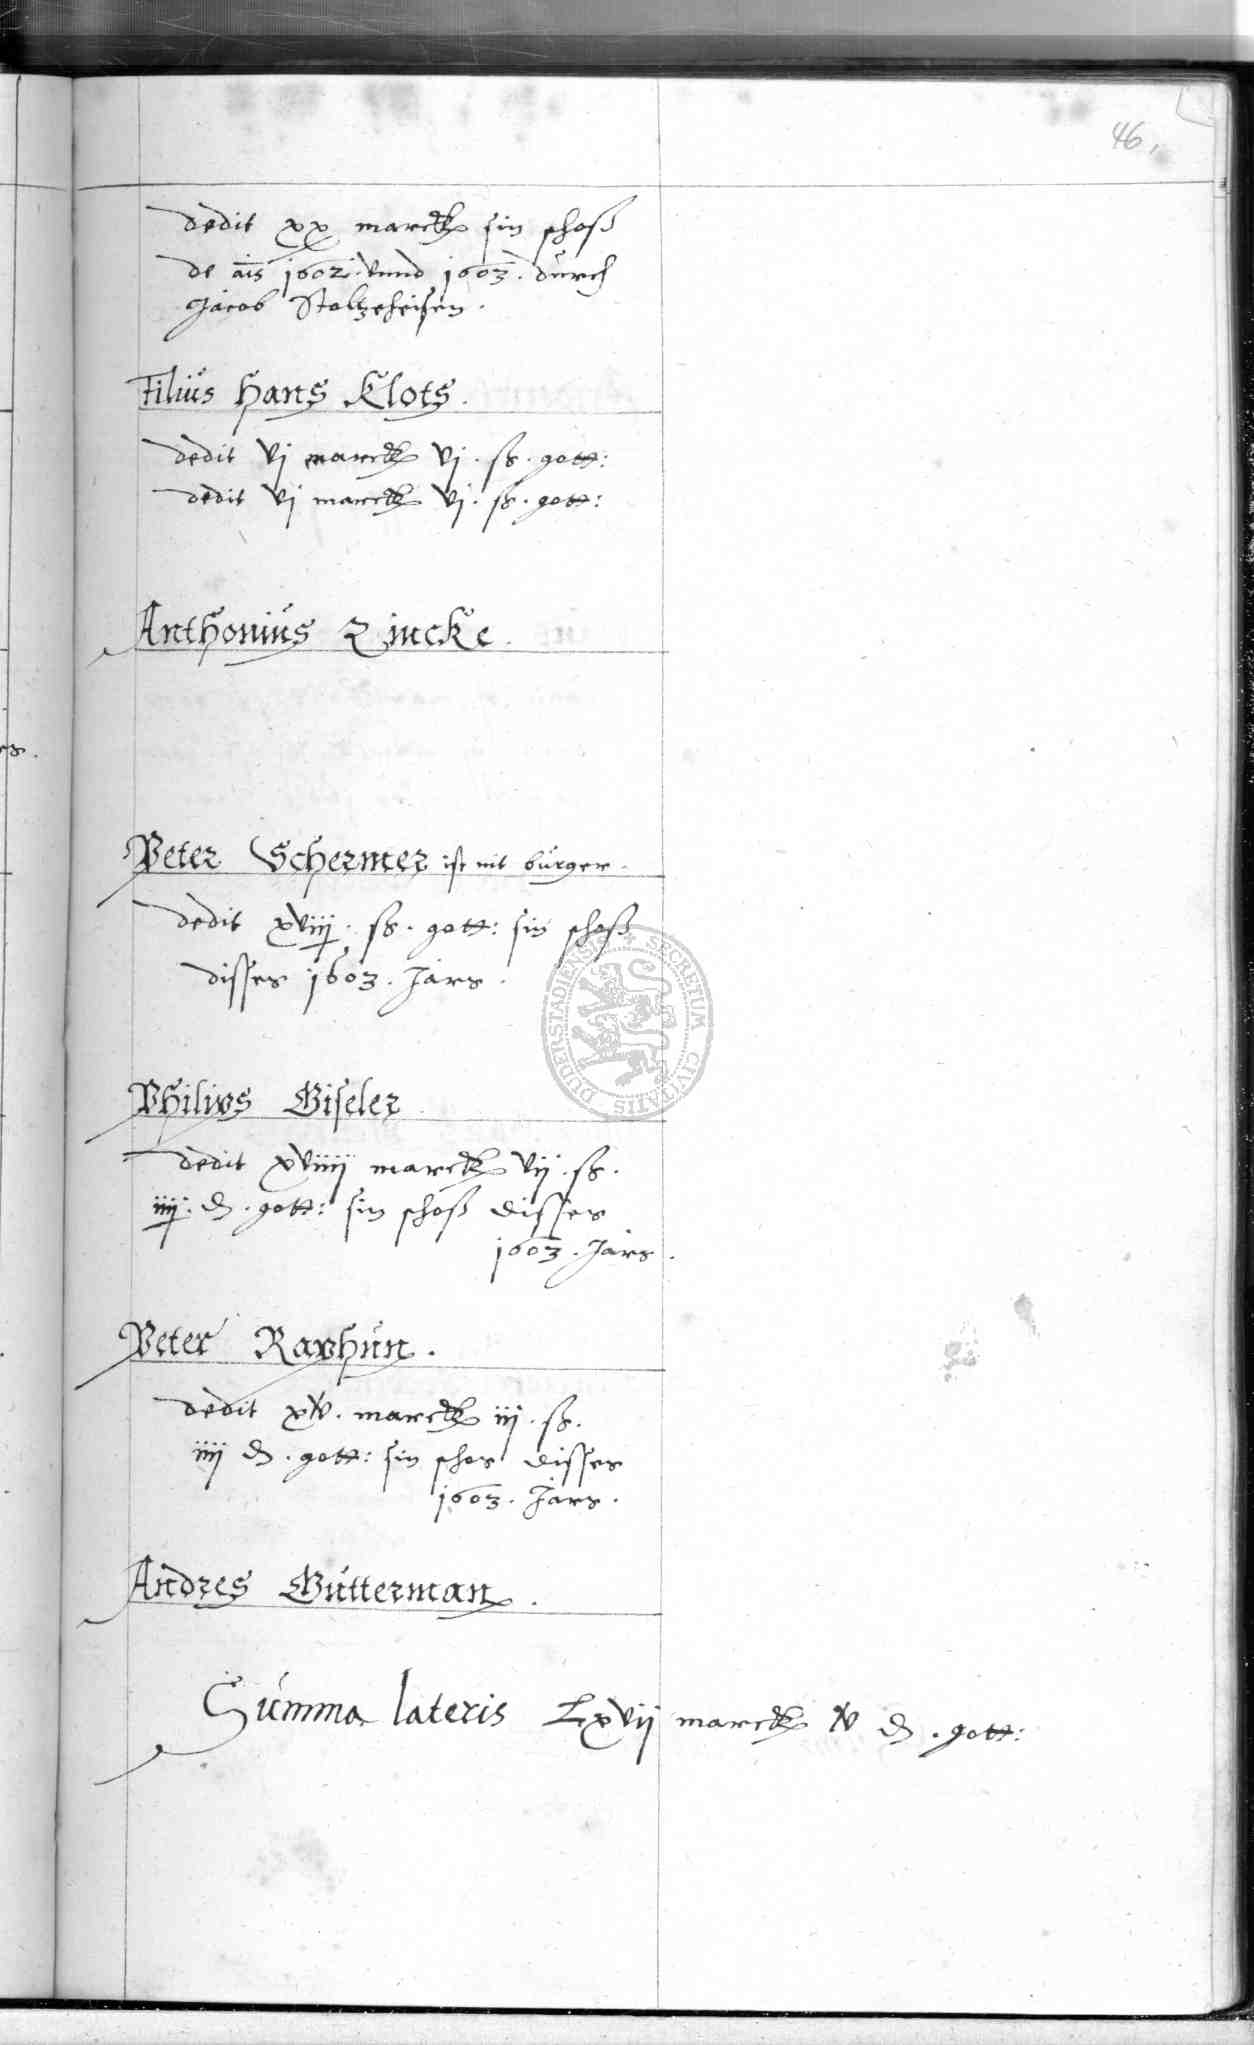 46.
dedit xx marck sin schoß
de ais 1602. vnnd 1603. durch
Jacob Stoltzeheisen.
Filius Hans Klots.
dedit vj marck vj. ß. gott:
dedit vj marck vj. ß. gott:
Anthonius Zincke.
Peter Schermer ist nit burger.
dedit xviij. ß. gott: sin schoß
disses 1603. Jars.
Philips Giseler
dedit xviiij marck vij. ß.
iiij. d. gott: sin schoß disses
1603. Jars.
Peter Raphun.
dedit xv. marck iij. ß.
iiij d. gott: sin schos disses
1603. Jars.
Andres Gutterman.
Summa lateris Lxvij marck v d. gott:
SECRETUM CIVITATIS DUDERSTADIENSIS